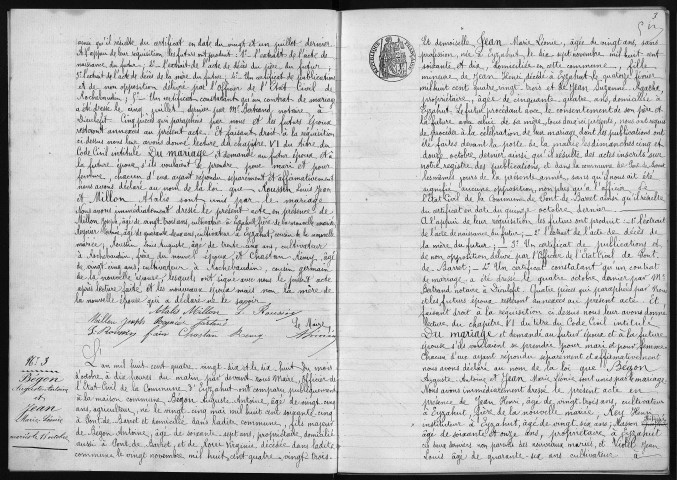 ainsi qu'il résulte du certificat en date du vingt et un juillet dernier
A l'appui de leur réquisition les futurs ont produit : 1° l'extrait de l'acte de
naissance du futur ; 2° l'extrait de l'acte de décès du père du futur
3° l'extrait de l'acte de décès de la mère du futur 4° Un certificat de publications
et de non opposition délivré par l'Officier de l'Etat Civil de
Rochebaudin ; 5° Un certificat constatant qu'un contrat de mariage
a été dressé le cinq juillet dernier par Me Bertrand, notaire à
Dieulefit Cinq pièces qui paraphées par nous et les futurs époux
resteront annexées au présent acte. Et faisant droit à la réquisition
ci dessus nous leur avons donné lecture du chapitre VI du titre du
Code Civil intitulé Du mariage et demandé au futur époux et à
la future épouse s'ils voulaient se prendre pour mari et pour
femme, chacun d'eux ayant répondu séparément et affirmativement
nous avons déclaré au nom de la loi que Roussin Louis Jean
et Millon Atalie sont unis par le mariage
Nous avons immédiatement dressé le présent acte en présence de
Millon Joseph, âgé de vingt trois ans, cultivateur à Eyzahut frère de la nouvelle mariée
âgé de quarante deux ans, cultivateur à Eyzahut, cousin de la nouvelle
mariée ; Roussin Louis Auguste, âgé de trente cinq ans, cultivateur
à Rochebaudin, frère du nouvel époux et Chastan Rémy, âgé
de vingt cinq ans, cultivateur à Rochebaudin, cousin germain
de la nouvelle épouse, lesquels ont signé avec nous le présent acte
après lecture faite et les nouveaux époux mais non la mère de
la nouvelle épouse qui a déclaré ne le savoir
Atalie Millon L. Roussin
Millon joseph
Le Maire
Roussin frère Chastan Remy
N° 3
Bégon
Auguste Antoine
et
Jean
Marie Léonie
L'an mil huit cent quatre vingt dix et le dix huit du mois
d'octobre à dix heures du matin par devant nous Maire, Officier de
l'Etat Civil de la Commune d'Eyzahut ont comparu publiquement
à la maison commune, Bégon Auguste Antoine, âgé de vingt cinq
ans, agriculteur, né le vingt cinq mai mil huit cent soixante cinq
à Pont de Barret et domicilié dans ladite commune, fils majeur
de Bégon Antoine, âgé de soixante sept ans, propriétaire, domicilié
aussi à Pont de Barret, et de Virginie décédée dans ladite
commune le vingt novembre mil huit cent quatre vingt trois
3
Et demoiselle Jean Marie Léonie, âgée de vingt ans, sans
profession, née à Eyzahut, le dix sept novembre mil huit cent
soixante et dix, domiciliée en cette commune, fille
mineure de Jean René décédé à Eyzahut le quatorze février
mil huit cent quatre vingt trois et de Jean Suzanne Agathe,
propriétaire, âgée de cinquante quatre ans, domiciliée à
Eyzahut. Le futur procédant avec le consentement de son père et
la future avec celui de sa mère, tous deux ici présents, nous ont requis
de procéder à la célébration de leur mariage dont les publications ont
été faites devant la porte de la mairie les dimanches cinq et
douze octobre dernier ainsi qu'il résulte des actes inscrits sur
notre registre des publications et dans la commune de Pont de Barret
les mêmes jours de la présente année, sans qu'il nous ait été
signifié aucune opposition, non plus qu'à l'officier de
l'Etat Civil de la Commune de Pont de Barret ainsi qu'il résulte
du certificat en date du quinze octobre dernier.
A l'appui de leur réquisition, les futurs ont produit : 1° l'extrait
de l'acte de naissance du futur ; 2° l'extrait de l'acte de décès de
la mère du futur ; 3° Un certificat de publications et
de non opposition délivré par l'Officier de l'Etat Civil de Pont
de Barret ; 4° Un certificat constatant qu'un contrat
de mariage a été dressé le quatre octobre dernier par Me
Bertrand notaire à Dieulefit Quatre pièces qui paraphées par nous
et les futurs époux resteront annexées au présent acte. Et
faisant droit à la réquisition ci dessus nous leur avons donné
lecture du chapitre VI du titre du Code Civil intitulé
Du mariage et demandé au futur époux et à la future
épouse, s'ils voulaient se prendre pour mari et pour femme
Chacun d'eux ayant répondu séparément et affirmativement
nous avons déclaré au nom de la loi que Bégon
Auguste Antoine et Jean Marie Léonie sont unis par le mariage
Nous avons immédiatement dressé le présent acte en
présence de Jean Henri, âgé de vingt trois ans, cultivateur
à Eyzahut, frère de la nouvelle mariée, Rey Henri
instituteur à Eyzahut, âgé de vingt six ans, Masson
âgé de soixante et onze ans, propriétaire à Eyzahut
les deux derniers non parents des nouveaux mariés, et Viollet Jean
Louis âgé de quarante six ans cultivateur à